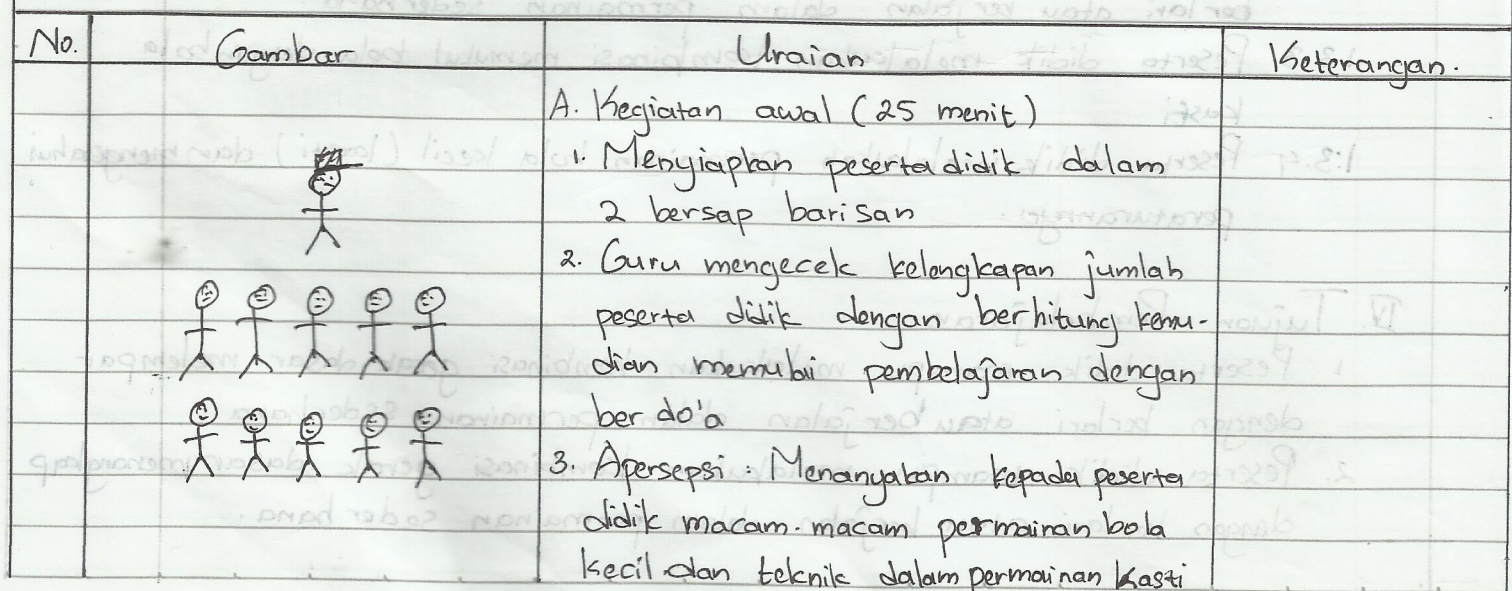 No. Gambar Uraian Keterangan.
A. Kegiatan awal (25 menit)
1. Menyiapkan peserta didik dalam
2 bersap barisan
2. Guru mengecek kelengkapan jumlah
peserta didik dengan berhitung kemu-
dian memulai pembelajaran dengan
berdo'a
3. Apersepsi : Menanyakan kepada peserta
didik macam-macam permainan bola
kecil dan teknik dalam permainan kasti